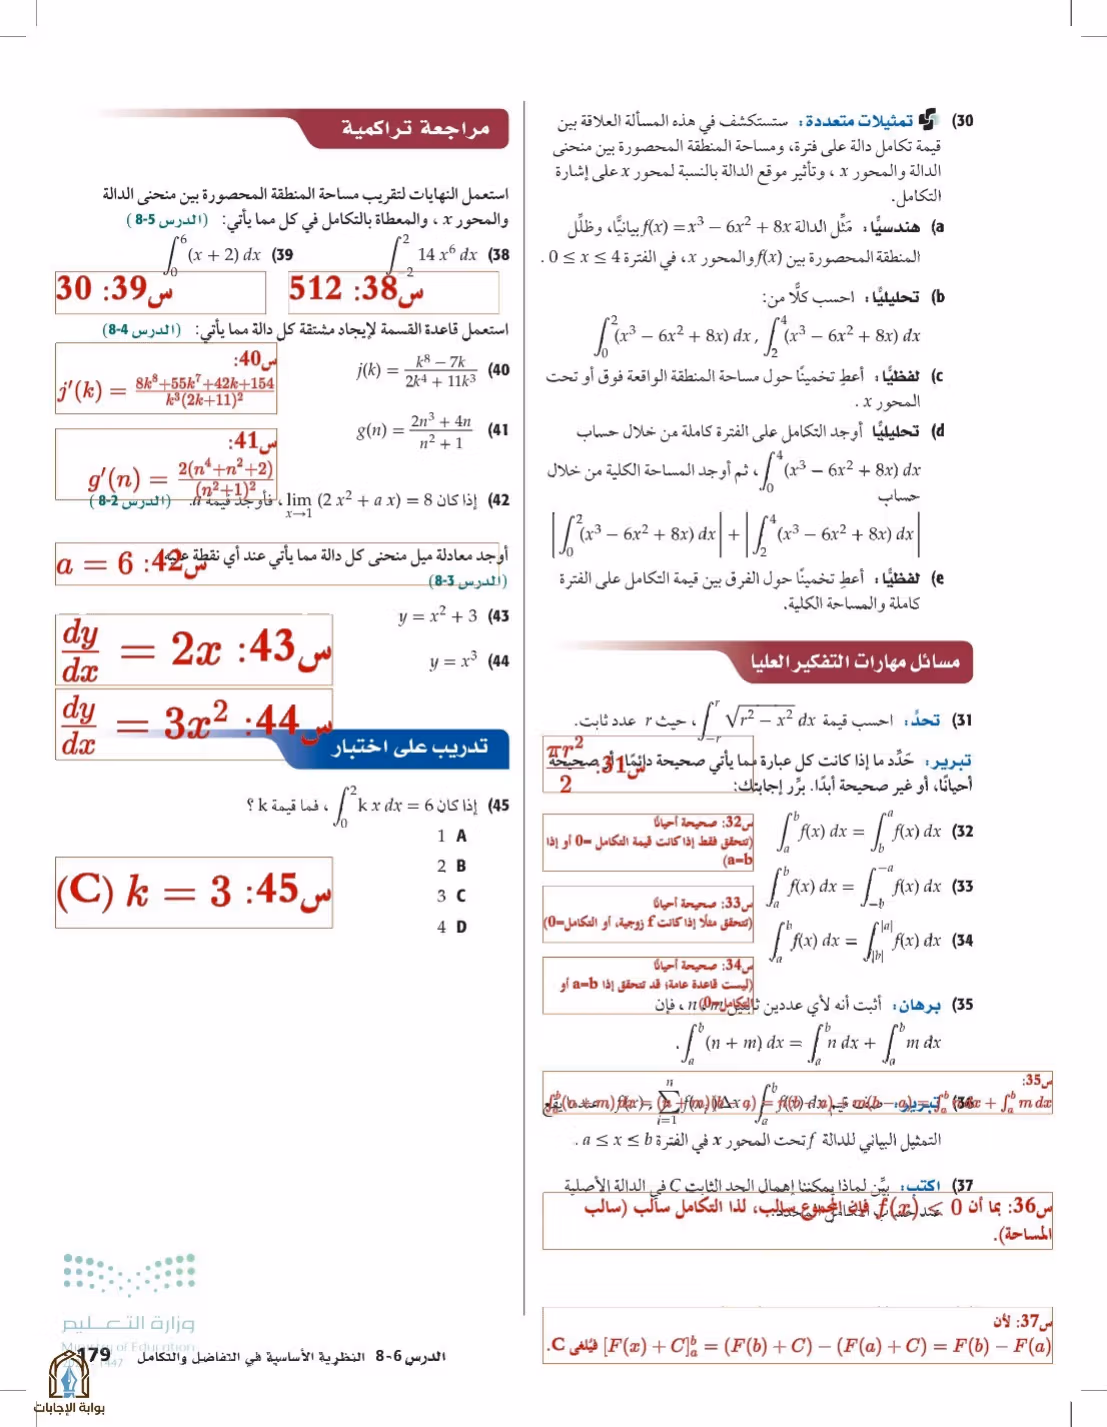 30) تمثيلات متعددة: ستستكشف في هذه المسألة العلاقة بين
قيمة تكامل دالة على فترة، ومساحة المنطقة المحصورة بين منحنى
الدالة والمحور x ، وتأثير موقع الدالة بالنسبة لمحور x على إشارة
التكامل.
a) هندسيًّا: مَثِّل الدالة f(x) = x³ − 6x² + 8x بيانيًّا، وظلِّل
المنطقة المحصورة بين f(x) والمحور x، في الفترة 0 ≤ x ≤ 4 .
b) تحليليًّا: احسب كلًّا من:
∫₀² (x³ − 6x² + 8x) dx , ∫₂⁴ (x³ − 6x² + 8x) dx
c) لفظيًّا: أعطِ تخمينًا حول مساحة المنطقة الواقعة فوق أو تحت
المحور x .
d) تحليليًّا أوجد التكامل على الفترة كاملة من خلال حساب
∫₀⁴ (x³ − 6x² + 8x) dx ، ثم أوجد المساحة الكلية من خلال
حساب
|∫₀² (x³ − 6x² + 8x) dx| + |∫₂⁴ (x³ − 6x² + 8x) dx|
e) لفظيًّا: أعطِ تخمينًا حول الفرق بين قيمة التكامل على الفترة
كاملة والمساحة الكلية.
مسائل مهارات التفكير العليا
31) تحدٍّ: احسب قيمة ∫₋ᵣʳ √(r² − x²) dx ، حيث r عدد ثابت.
س31: πr²/2
تبرير: حَدِّد ما إذا كانت كل عبارة مما يأتي صحيحة دائمًا أو صحيحة
أحيانًا، أو غير صحيحة أبدًا. برِّر إجابتك:
32) ∫ₐᵇ f(x) dx = ∫_b^a f(x) dx
س32: صحيحة أحيانًا
(تتحقق فقط إذا كانت قيمة التكامل =0 أو إذا
a=b)
33) ∫ₐᵇ f(x) dx = ∫_{−b}^{−a} f(x) dx
س33: صحيحة أحيانًا
(تتحقق مثلًا إذا كانت f زوجية، أو التكامل=0)
34) ∫ₐᵇ f(x) dx = ∫_{|b|}^{|a|} f(x) dx
س34: صحيحة أحيانًا
(ليست قاعدة عامة؛ قد تتحقق إذا a=b أو
التكامل=0)
35) برهان: أثبت أنه لأي عددين ثابتين n ، m ، فإن
∫ₐᵇ (n + m) dx = ∫ₐᵇ n dx + ∫ₐᵇ m dx .
س35:
36) تبرير:
التمثيل البياني للدالة f تحت المحور x في الفترة a ≤ x ≤ b .
37) اكتب: بيِّن لماذا يمكننا إهمال الحد الثابت C في الدالة الأصلية
عند حساب التكامل المحدد.
س36: بما أن f(x) ≤ 0 فإن المجموع سالب، لذا التكامل سالب (سالب
المساحة).
س37: لأن
[F(x) + C]ₐᵇ = (F(b) + C) − (F(a) + C) = F(b) − F(a) فيُلغى C.
مراجعة تراكمية
استعمل النهايات لتقريب مساحة المنطقة المحصورة بين منحنى الدالة
والمحور x ، والمعطاة بالتكامل في كل مما يأتي: (الدرس 5-8)
38) ∫₋₂² 14 x⁶ dx 39) ∫₀⁶ (x + 2) dx
س38: 512 س39: 30
استعمل قاعدة القسمة لإيجاد مشتقة كل دالة مما يأتي: (الدرس 4-8)
40) j(k) = (k⁸ − 7k)/(2k⁴ + 11k³)
س40:
j′(k) = (8k⁸+55k⁷+42k+154)/(k³(2k+11)²)
41) g(n) = (2n³ + 4n)/(n² + 1)
س41:
g′(n) = 2(n⁴+n²+2)/(n²+1)²
42) إذا كان lim x→1 (2x² + a x) = 8 ، فأوجد قيمة a. (الدرس 2-8)
س42: a = 6
أوجد معادلة ميل منحنى كل دالة مما يأتي عند أي نقطة عليه:
(الدرس 3-8)
43) y = x² + 3
س43: dy/dx = 2x
44) y = x³
س44: dy/dx = 3x²
تدريب على اختبار
45) إذا كان ∫₀² k x dx = 6 ، فما قيمة k ؟
A 1
B 2
C 3
D 4
س45: k = 3 (C)
وزارة التعليم
Ministry of Education
1447
الدرس 6-8 النظرية الأساسية في التفاضل والتكامل 179
بوابة الإجابات